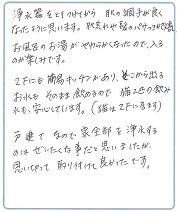 浄水器をとりつけてから 肌の調子が良く
なったように思います。肌あれや髪のパサつきが改善
お風呂のお湯がやわらかくなったので、入る
のが楽しみです。
2Fにも簡易キッチンがあり、そこから出る
お水もそのまま飲めるので 猫2匹の飲み
水も、安心しています。(猫は2Fに居ます)
戸建て なので家全部を浄水する
のは ぜいたくな事だと思いましたが、
思い切って 取り付けて良かったです。